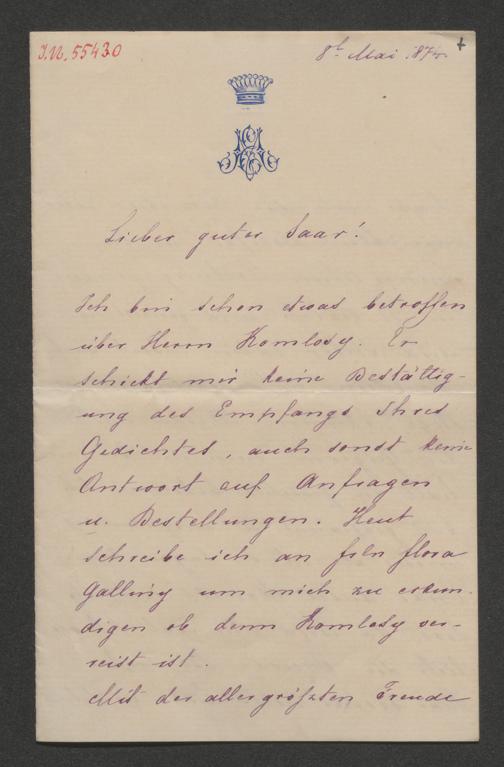 I.N. 55430
8t Mai 187
Lieber guter Saar!
Ich bin schon etwas betroffen
über Herrn Komlosy. Er
schickt mir keine Bestättig-
ung des Empfangs Ihres
Gedichtes, auch sonst keine
Antwort auf Anfragen
u. Bestellungen. Heut
schreibe ich an frln flora
Galliny um mich zu erkun-
digen ob denn Komlosy ver-
reist ist.
Mit der allergrößten Freude